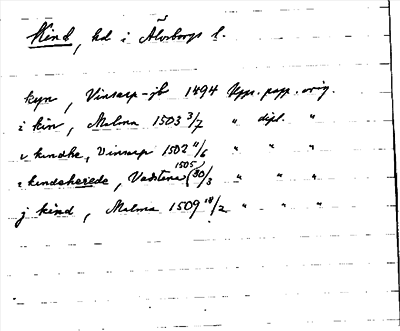 Kind, hd i Älvsborgs l.
kyn, Vinsarp-jb 1494 Upps. papp. orig.
i kin, Malma 1503 3/7 " dipl. "
i kindhe, Vinsarp 1502 11/6 " " "
i kindsherede, Vadstena 1505 (30/3 " " "
j kind, Malma 1509 18/2 " " "